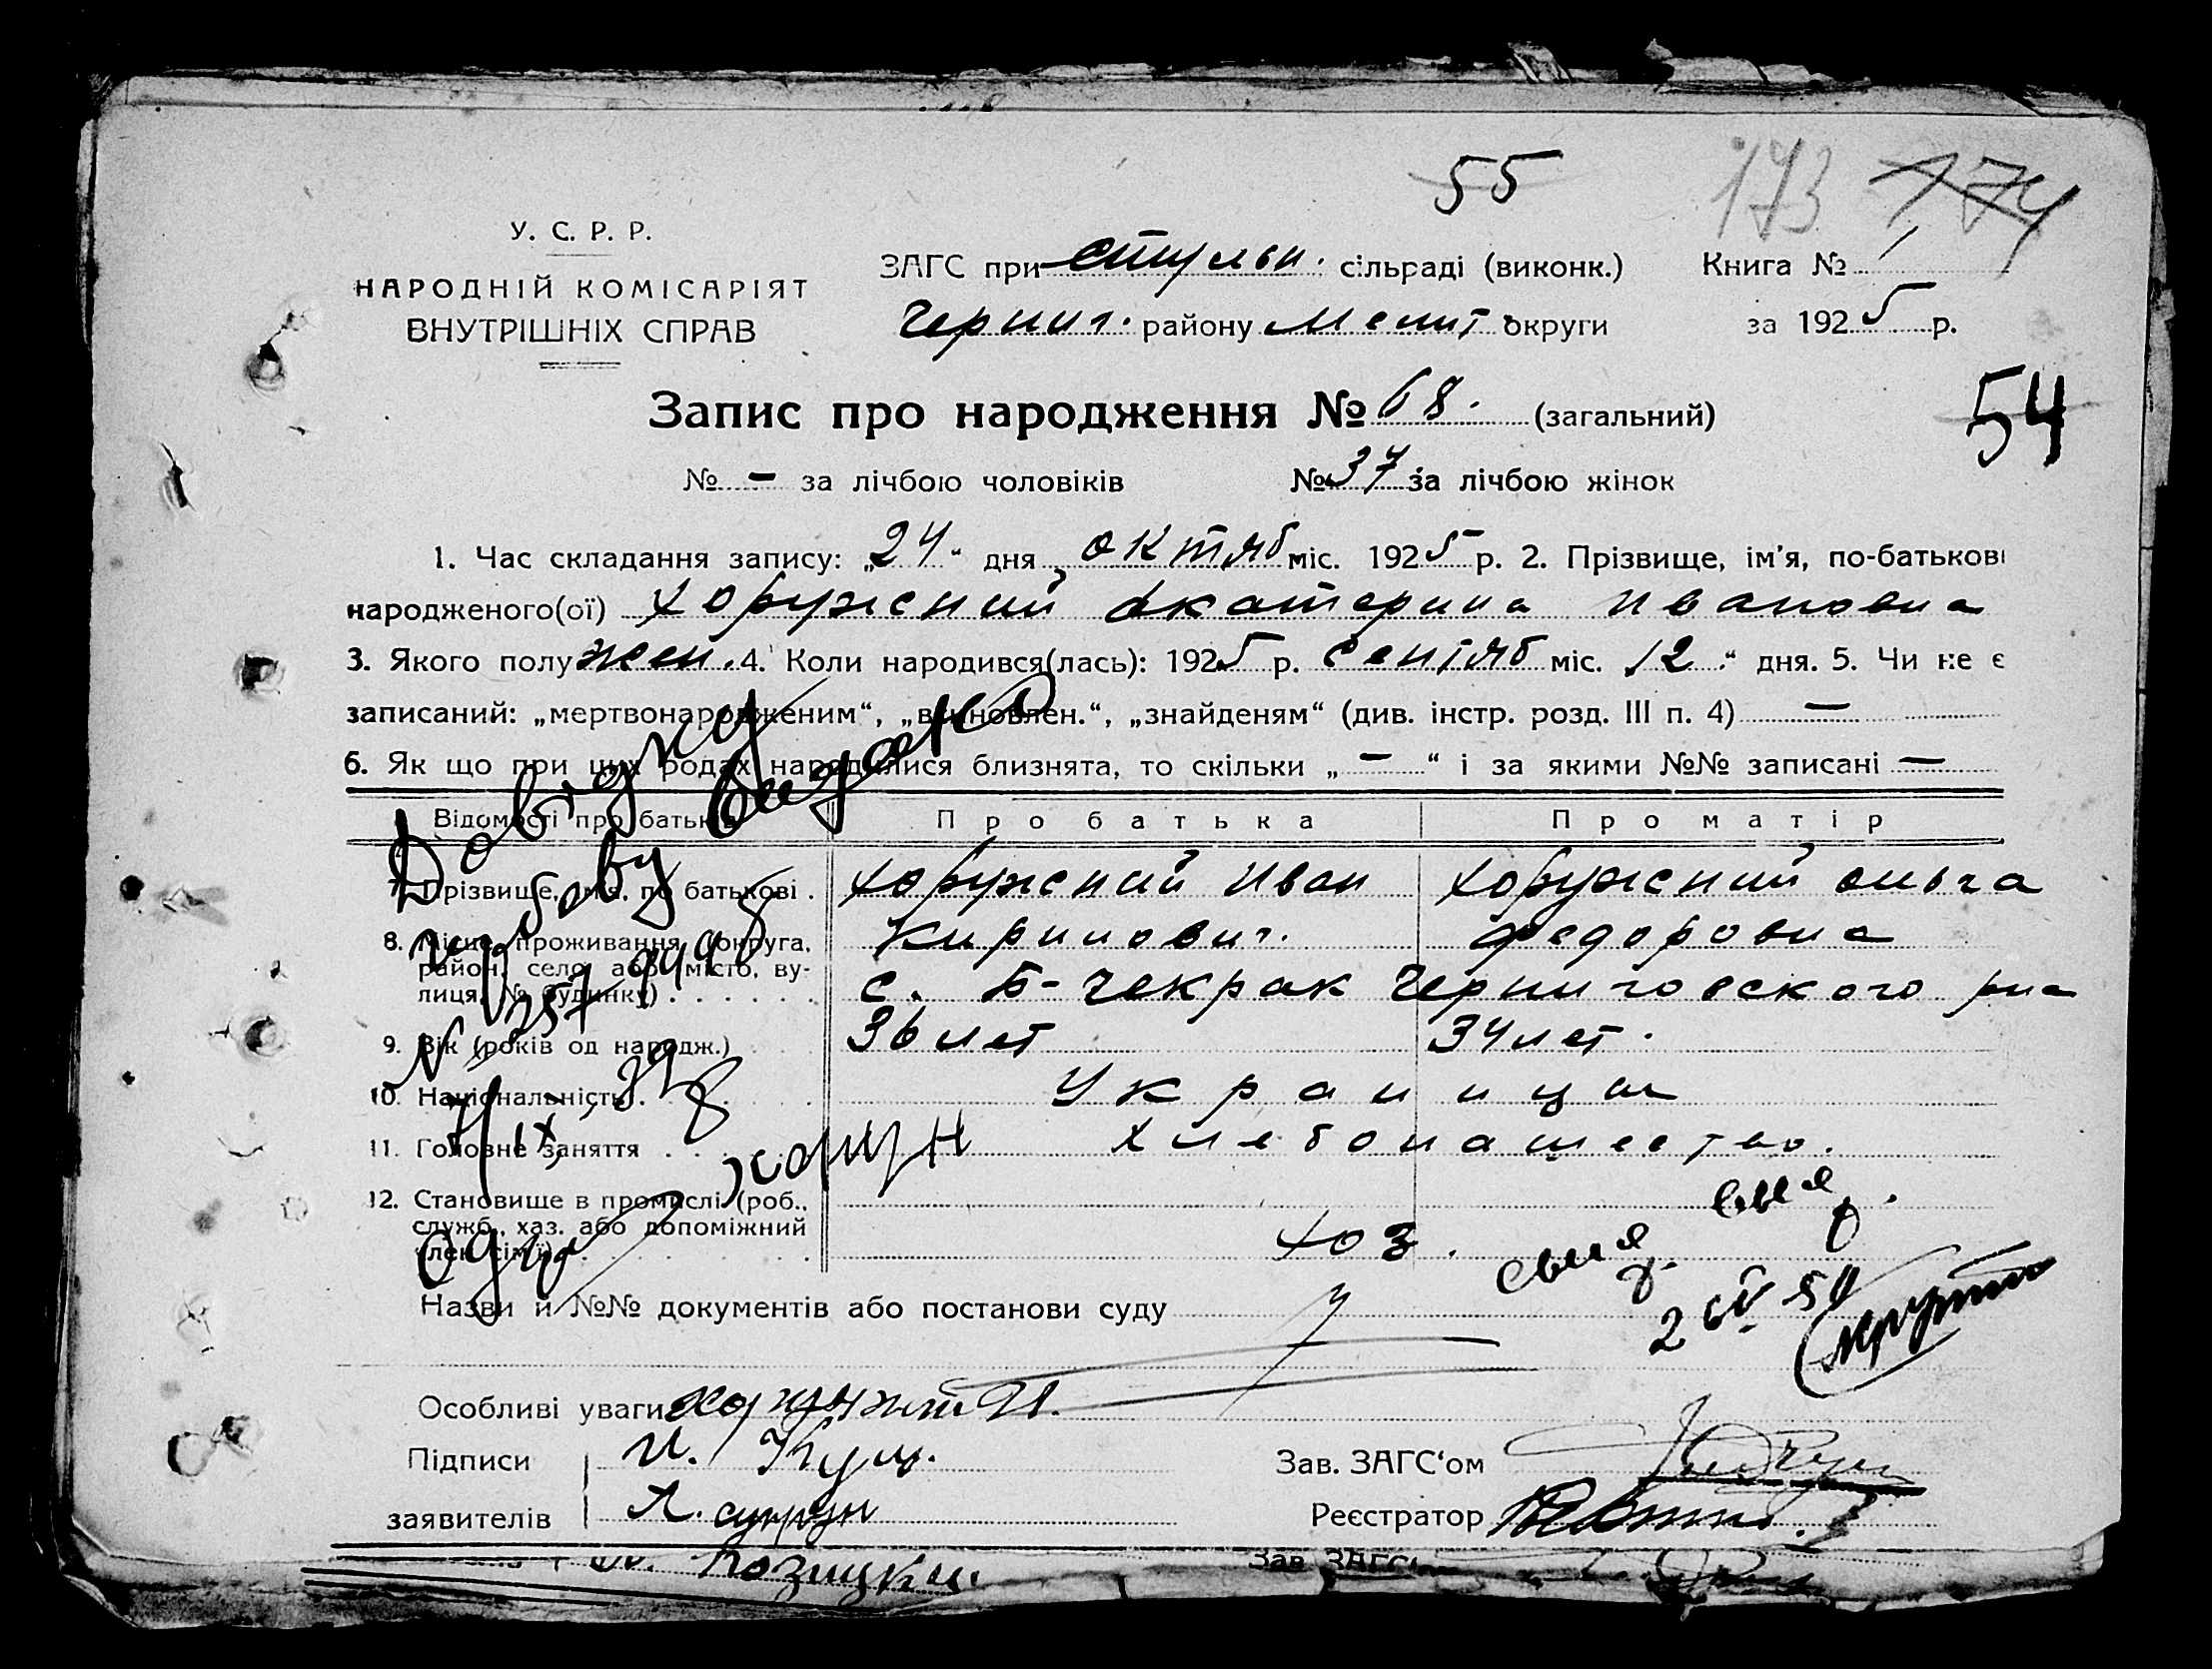 55
173 174
У. С. Р. Р.
НАРОДНІЙ КОМІСАРІЯТ
ВНУТРІШНІХ СПРАВ
ЗАГС при сільраді (виконк.) Книга № 1
Черниг. району Мелит округи за 1925 р.
54
Запис про народження № 68. (загальний)
№ — за лічбою чоловіків № 37 за лічбою жінок
1. Час складання запису: „24“ дня октяб міс. 1925 р. 2. Прізвище, ім'я, по-батькові
народженого(ої) Хоружений Екатерина Ивановна
3. Якого полу жен. 4. Коли народився(лась): 1925 р. Сентяб міс. 12“ дня. 5. Чи не є
записаний: „мертвонародженим“, „всиновлен.“, „знайденям“ (див. інстр. розд. III п. 4) —
6. Як що при цих родах народилися близнята, то скільки „—“ і за якими №№ записані —
Відомості про батьків Про батька Про матір
7. Прізвище, ім'я, по батькові . Хоружений Иван Хоружений Ольга
Кирилович. Федоровна
8. Місце проживання (округа,
район, село або місто, ву-
лиця, № будинку) . . . . . . с. Б-Чекрак Черниговского рна
9. Вік (років од народж.) 36 лет 34 лет.
10. Національність . . . Украинцы
11. Головне заняття . . . Хлебопашество.
12. Становище в промислі (роб.,
служб., хаз. або допоміжний
член сім'ї) . . . хоз.
Довідку видано
№ 257
Назви й №№ документів або постанови суду
Особливі уваги
Підписи И. Кущ. Зав. ЗАГС'ом
заявителів Реєстратор
Козицки
Зав. ЗАГС